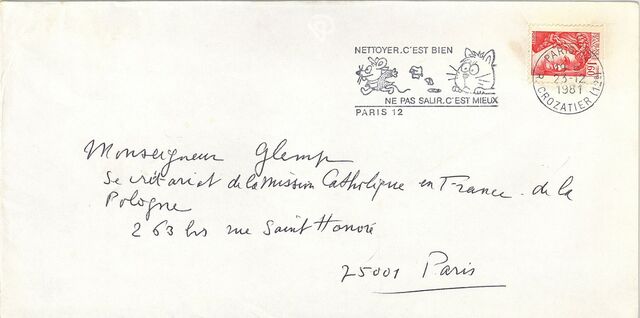 NETTOYER.C'EST BIEN
NE PAS SALIR.C'EST MIEUX
PARIS 12
PARIS
23-12
1981
R. CROZATIER (12e)
1,60
Monseigneur Glemp
Secrétariat de la Mission Catholique en France de la
Pologne
263 bis rue Saint Honoré
75001 Paris